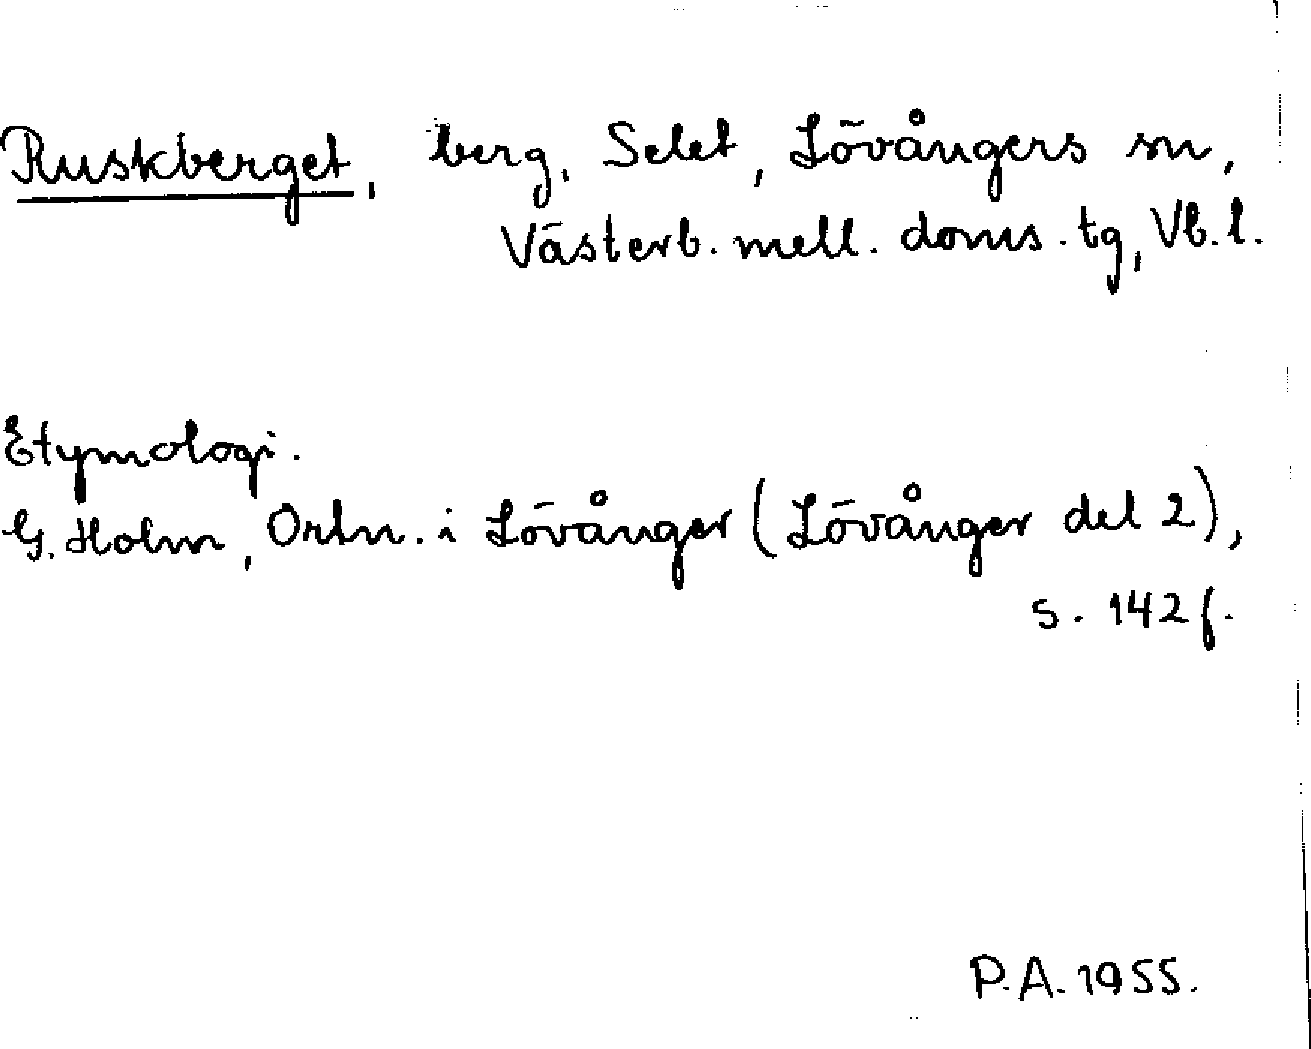 Ruskberget, berg, Selet, Lövångers sn,
Västerb. mell. doms. tg, Vb. l.
Etymologi.
G. Holm, Ortn. i Lövånger (Lövånger del 2),
s. 142 f.
P.A. 1955.